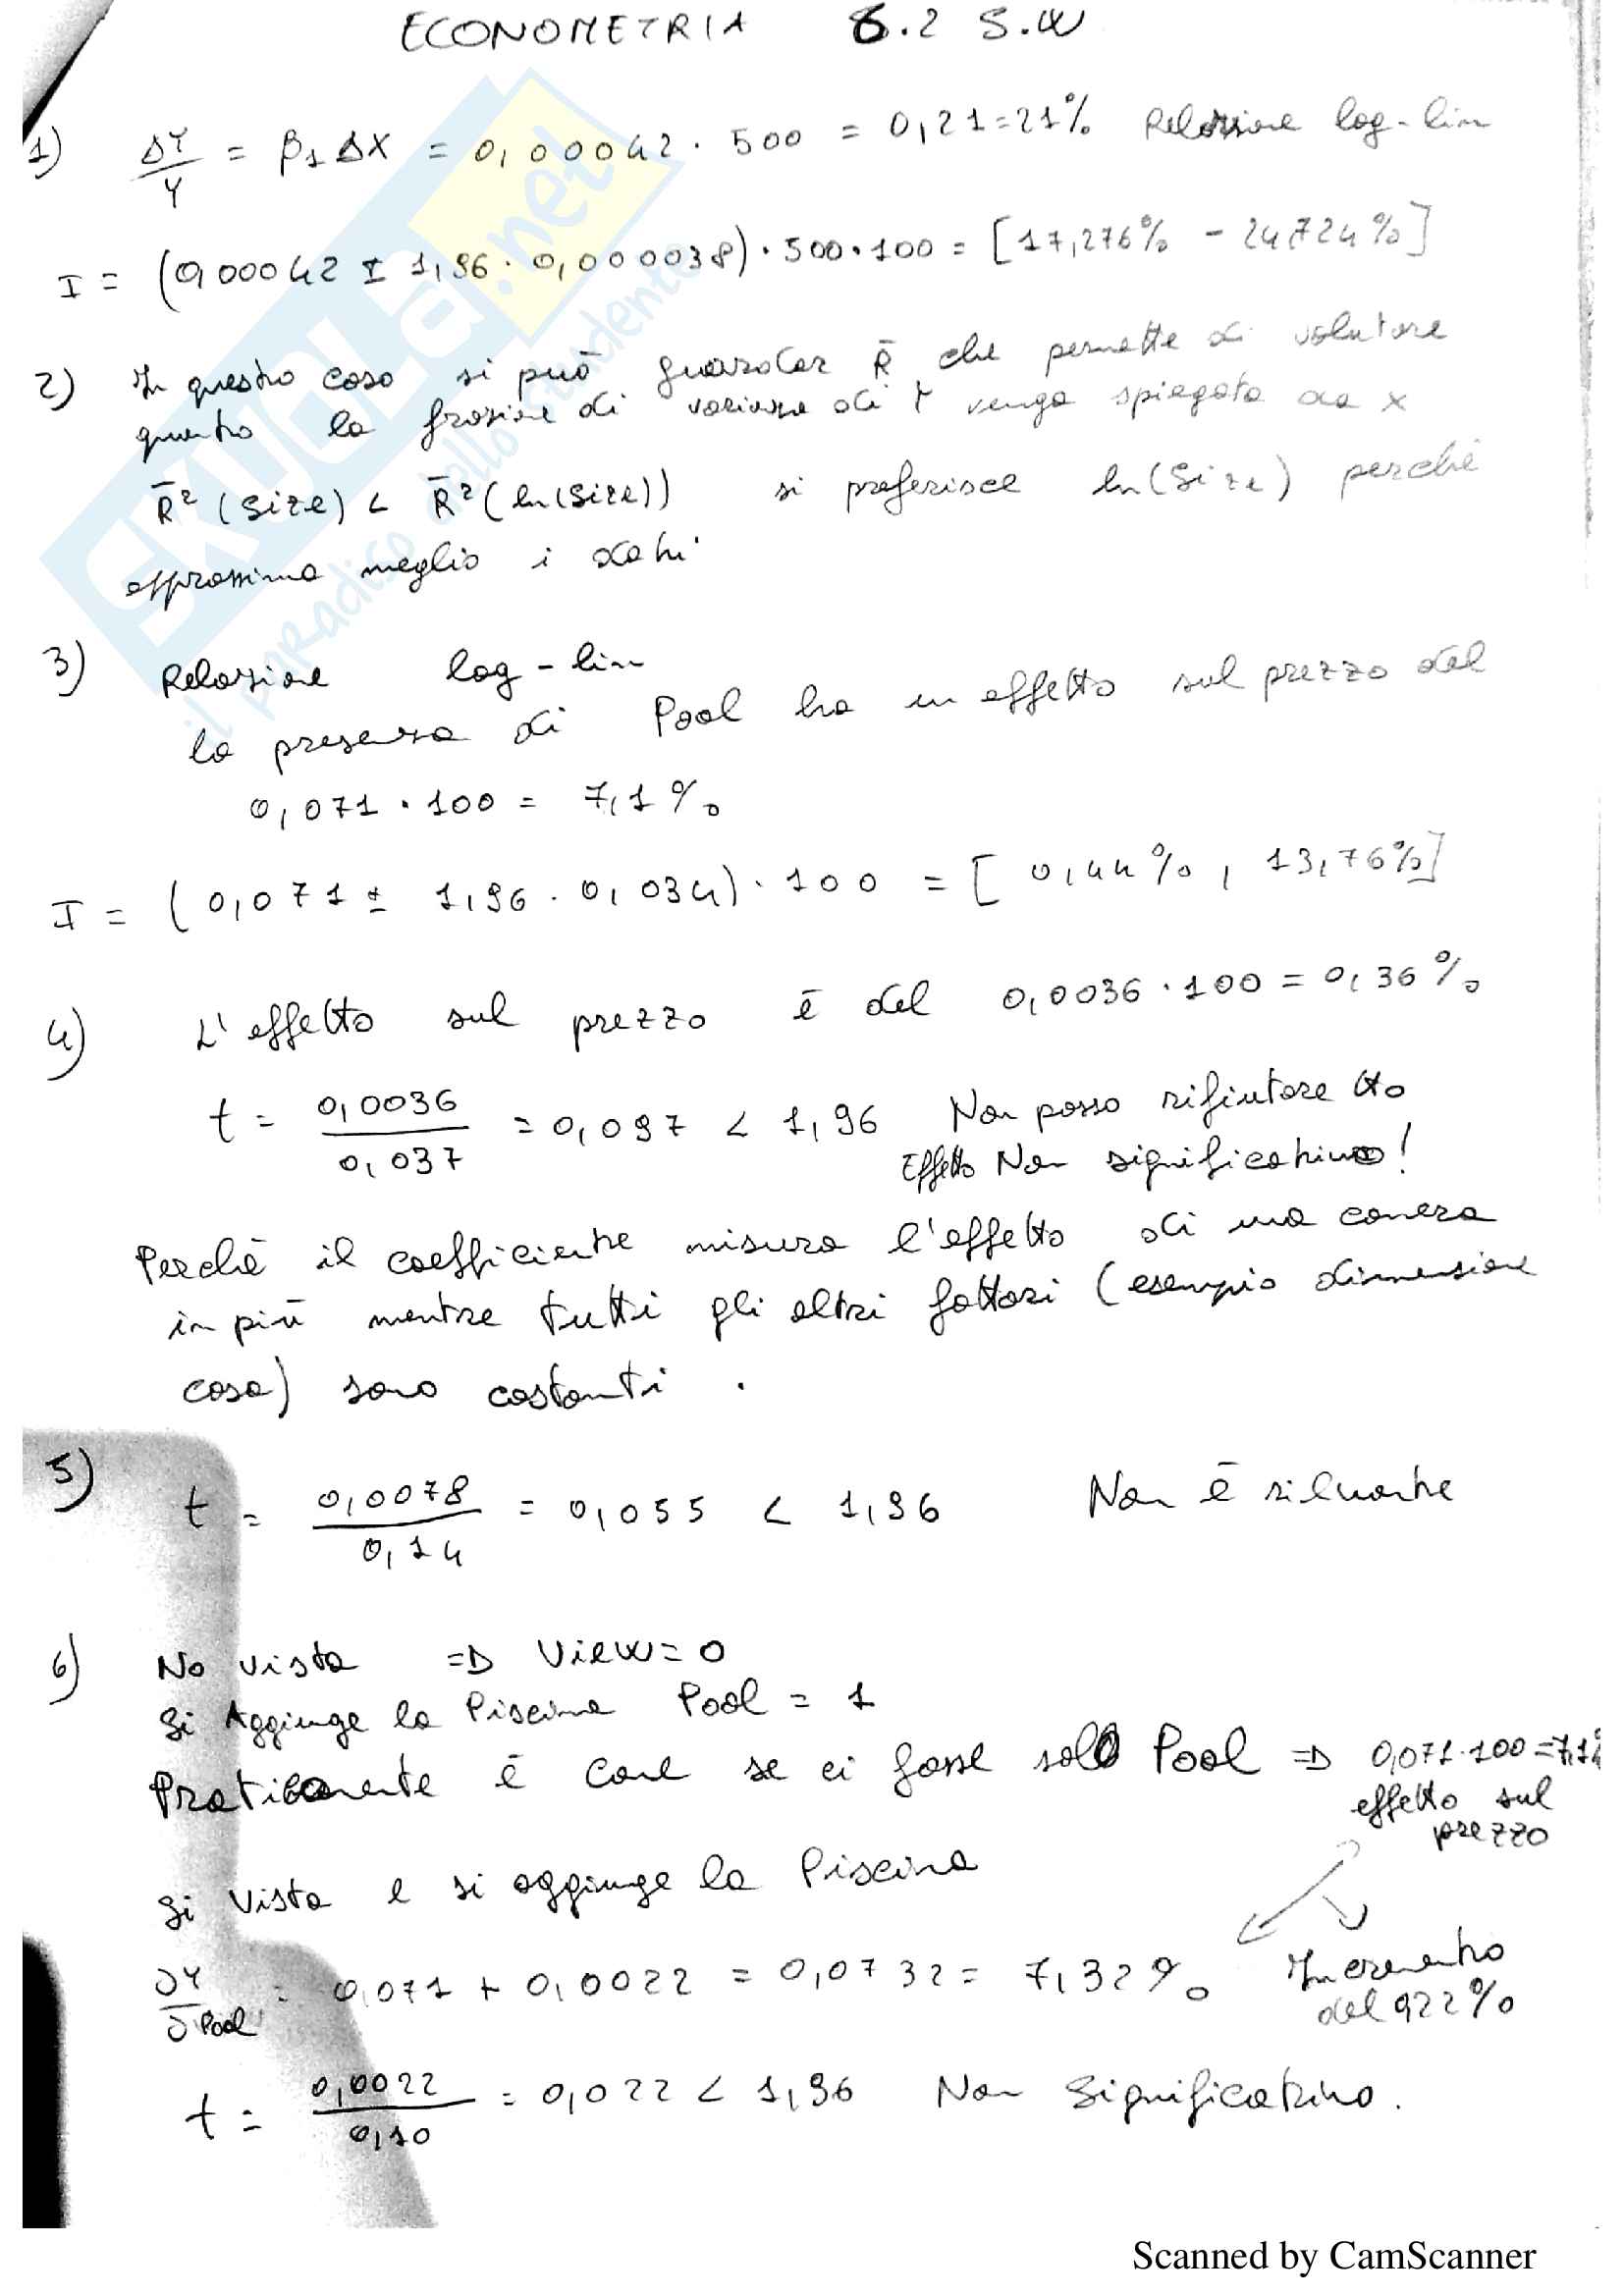 ECONOMETRIA 8.2 S.W
1) ΔY/Y = β1 ΔX = 0,00042 · 500 = 0,21 = 21% Relazione log-lin
I = (0,00042 ± 1,96 · 0,000038) · 500 · 100 = [17,276% - 24,724%]
2) In questo caso si può guardar R̄ che permette di valutare
quanto la frazione di varianza di Y venga spiegata da x
R̄² (Size) < R̄² (ln(Size)) si preferisce ln(Size) perchè
approssima meglio i dati
3) Relazione log-lin
la presenza di Pool ha un effetto sul prezzo del
0,071 · 100 = 7,1%
I = (0,071 ± 1,96 · 0,034) · 100 = [0,44%, 13,76%]
4) L'effetto sul prezzo è del 0,0036 · 100 = 0,36%
t = 0,0036/0,037 = 0,097 < 1,96 Non posso rifiutare H0
Effetto Non significativo!
Perchè il coefficiente misura l'effetto di una camera
in più mentre tutti gli altri fattori (esempio dimensione
casa) sono costanti.
5) t = 0,0078/0,14 = 0,055 < 1,96 Non è rilevante
6) No vista => View=0
Si Aggiunge la Piscina Pool = 1
Praticamente è come se ci fosse solo Pool => 0,071·100=7,1%
effetto sul
prezzo
Si Vista e si aggiunge la Piscina
∂Y/∂Pool = 0,071 + 0,0022 = 0,0732 = 7,32% Incremento
del 0,22%
t = 0,0022/0,10 = 0,022 < 1,96 Non Significativo.
SKUOLA.net
il paradiso dello studente
Scanned by CamScanner